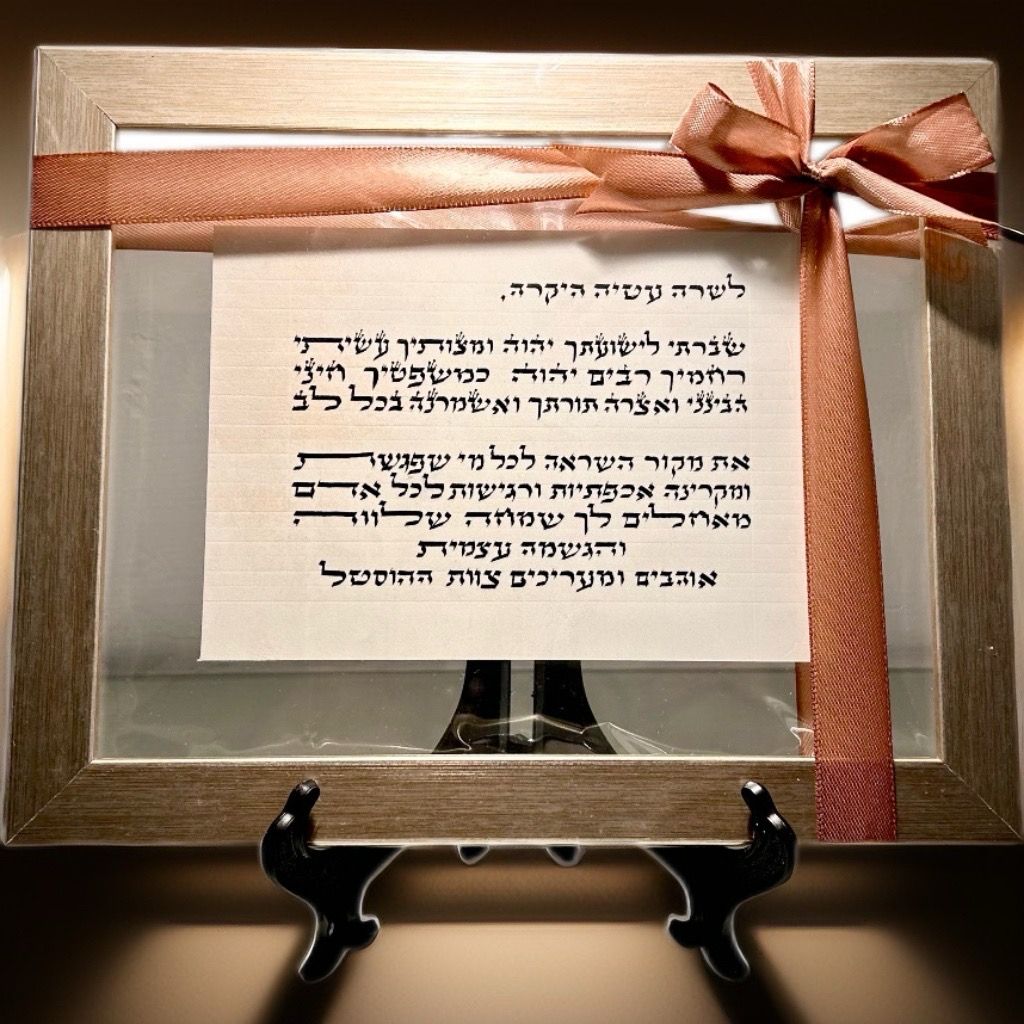 לשרה עטיה היקרה,
שברתי לישועתך יהוה ומצותיך עשיתי
רחמיך רבים יהוה כמשפטיך חיני
הבינני ואצרה תורתך ואשמרנה בכל לב
את מקור השראה לכל מי שפגשת
ומקרינה אכפתיות ורגישות לכל אדם
מאחלים לך שמחה שלווה
והגשמה עצמית
אוהבים ומעריכים צוות ההוסטל